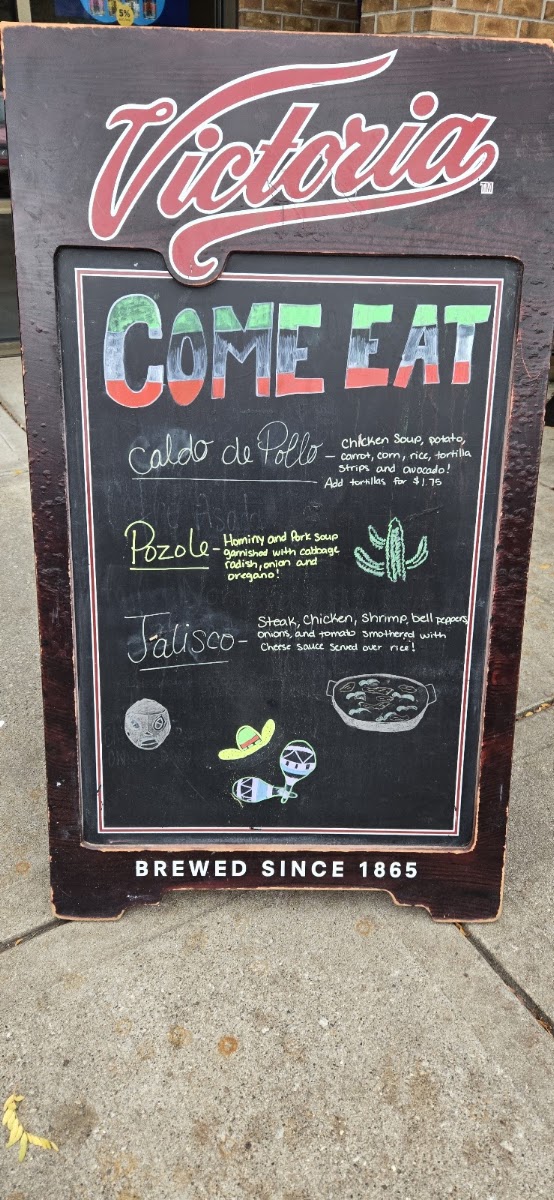 5%
Victoria
TM
COME EAT
Caldo de Pollo - Chicken Soup, potato,
carrot, corn, rice, tortilla
strips and avocado!
Add tortillas for $1.75
Pozole - Hominy and Pork Soup
garnished with cabbage
radish, onion and
oregano!
Jalisco - Steak, Chicken, Shrimp, bell peppers,
onions, and tomato smothered with
Cheese sauce served over rice!
BREWED SINCE 1865